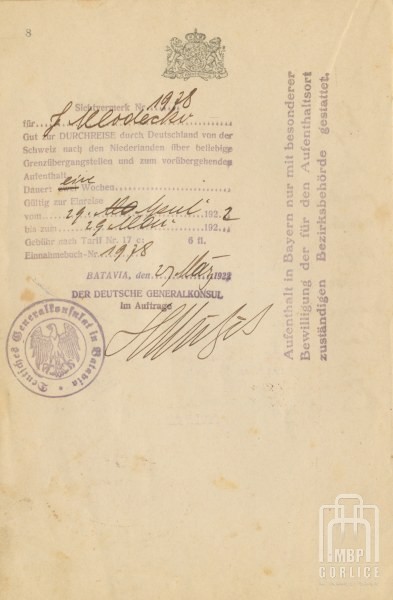 8
Sichtvermerk Nr. 1978
für J. Mlodecko
Gut zur DURCHREISE durch Deutschland von der
Schweiz nach den Niederlanden über beliebige
Grenzübergangstellen und zum vorübergehenden
Aufenthalt
Dauert ein Wochen.
Gültig zur Einreise
vom 29. April 1922
bis zum 29. 1922
Gebühr nach Tarif Nr. 17 6 fl.
Einnahmebuch-Nr. 1978
BATAVIA, den 27. März 1922
DER DEUTSCHE GENERALKONSUL
Im Auftrage
Deutsches Generalkonsulat in Batavia
Aufenthalt in Bayern nur mit besonderer
Bewilligung der für den Aufenthaltsort
zuständigen Bezirksbehörde gestattet.
MBP
GORLICE